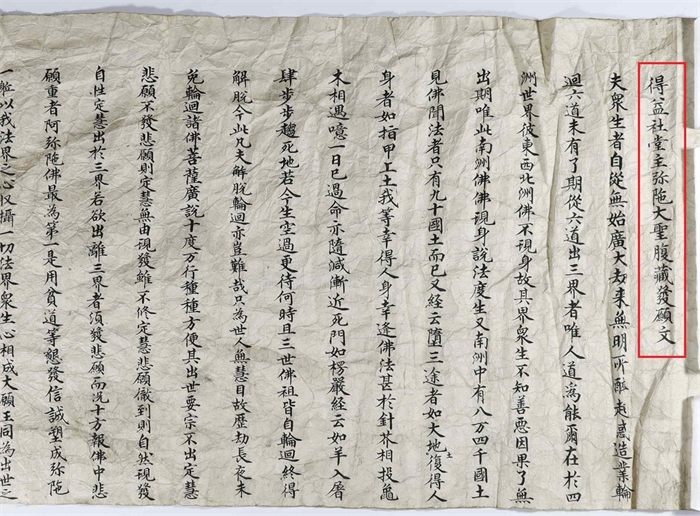 得益社堂主弥陁大聖腹藏發願文
夫衆生者自從無始廣大刼来無明所酔起惑造業輪
迴六道未有了期從六道出三界者唯人道爲能爾在於四
洲世界彼東西北洲佛不現身故其界衆生不知善惡因果了無
出期唯此南洲佛佛現身說法度生又南洲中有八万四千國土
見佛聞法者只有九十國土而已又経云墮三途者如大地土復得人
身者如指甲上土我等幸得人身幸逢佛法甚於針芥相投龜
木相遇噫一日已過命亦隨減漸近死門如楞嚴経云如羊入屠
肆步步趍死地若今生空過更待何時且三世佛祖皆自輪迴終得
解脫今此凡夫解脫輪迴亦豈難哉只為世人無慧目故歷劫長夜未
免輪迴諸佛菩薩廣說十度万行種種方便其出世要宗不出定慧
悲願不發悲願則定慧無由現發雖不修定慧悲願儆到則自然現發
自性定慧出於三界若欲出離三界者須發悲願而况十方報佛中悲
願重者阿弥陁佛最為第一是用貧道等懇發信誠塑成弥陁
一軀以我法界之心収攝一切法界衆生心相成大願王同為出世之